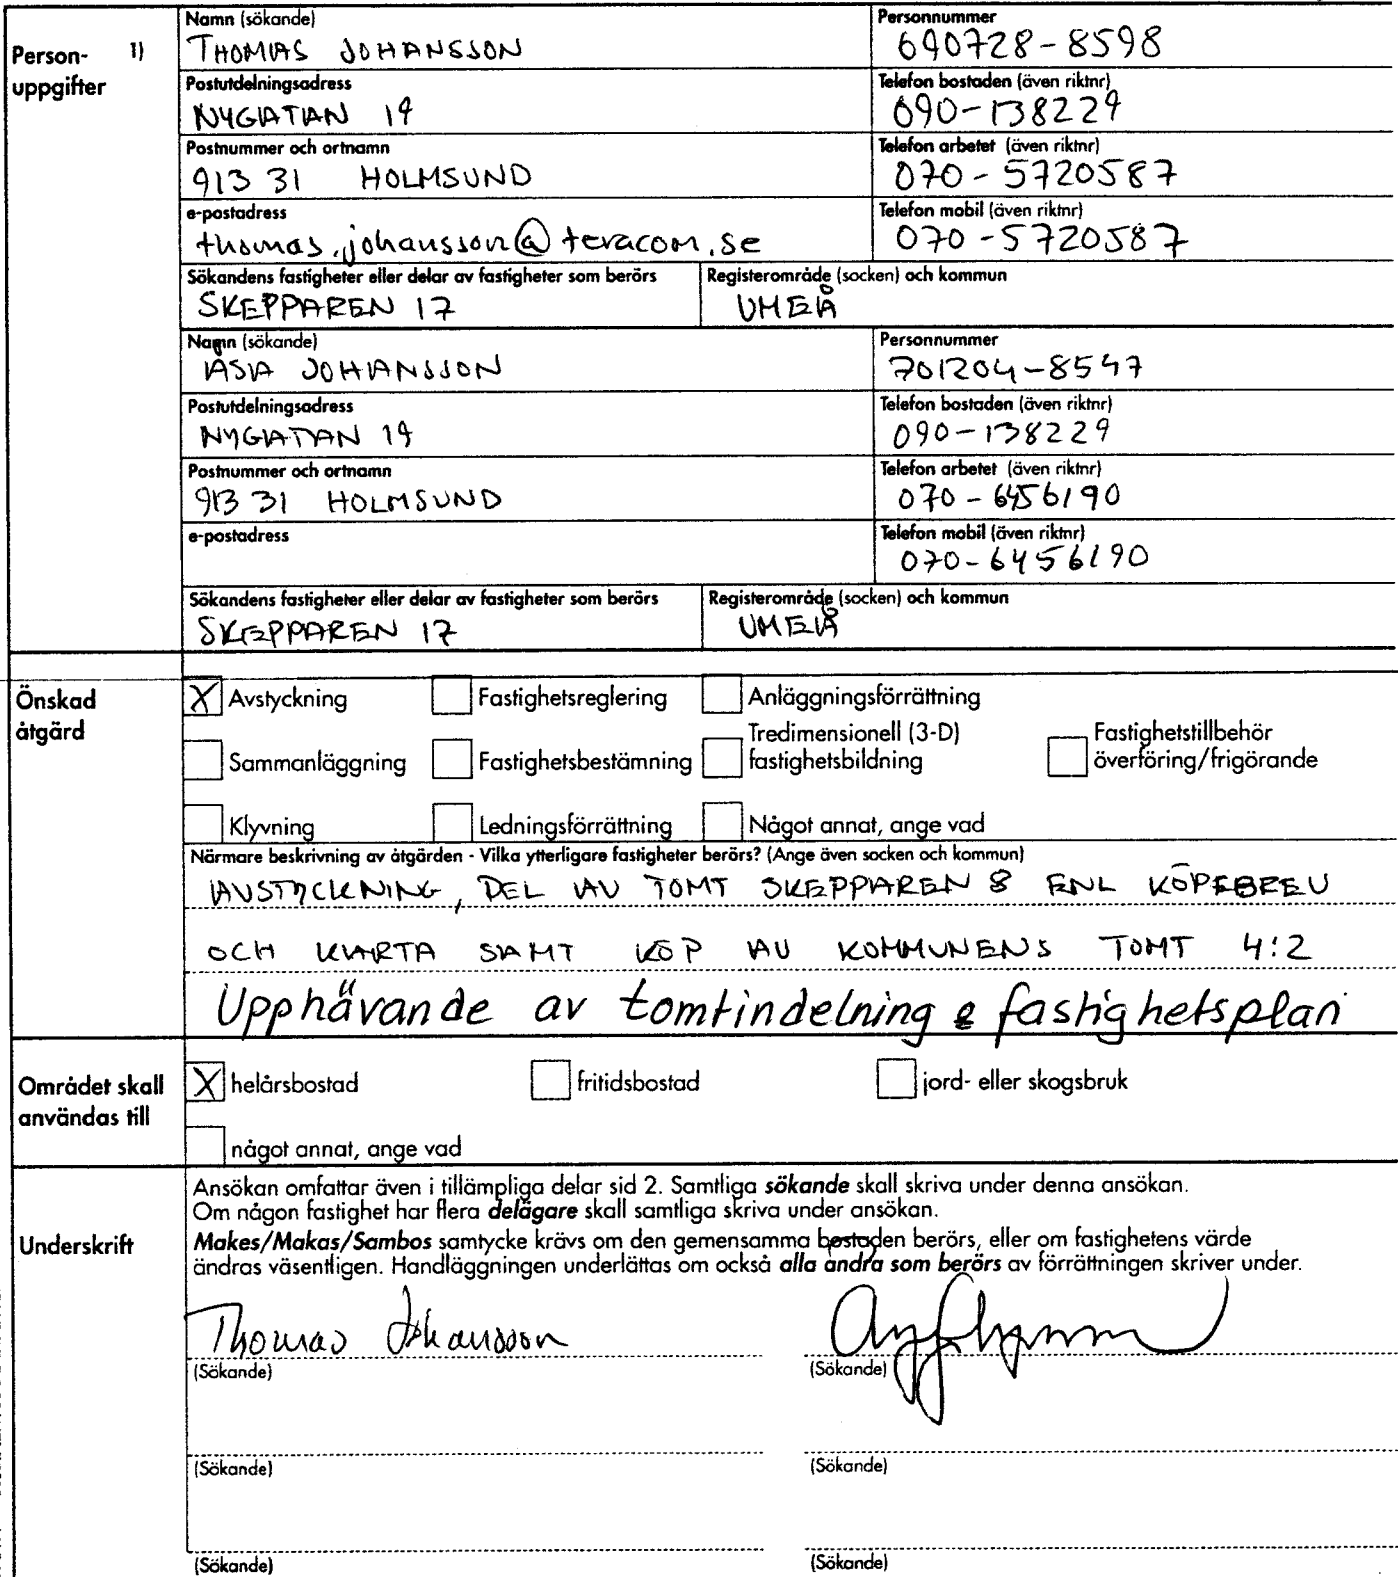 Person- 1)
uppgifter
Namn (sökande)
THOMAS JOHANSSON
Personnummer
690728-8598
Postutdelningsadress
NYGATAN 19
Telefon bostaden (även riktnr)
090-138229
Postnummer och ortnamn
913 31 HOLMSUND
Telefon arbetet (även riktnr)
070-5720587
e-postadress
thomas.johansson@teracom.se
Telefon mobil (även riktnr)
070-5720587
Sökandens fastigheter eller delar av fastigheter som berörs
SKEPPAREN 17
Registerområde (socken) och kommun
UMEÅ
Namn (sökande)
ÅSA JOHANSSON
Personnummer
701204-8547
Postutdelningsadress
NYGATAN 19
Telefon bostaden (även riktnr)
090-138229
Postnummer och ortnamn
913 31 HOLMSUND
Telefon arbetet (även riktnr)
070-6456190
e-postadress
Telefon mobil (även riktnr)
070-6456190
Sökandens fastigheter eller delar av fastigheter som berörs
SKEPPAREN 17
Registerområde (socken) och kommun
UMEÅ
Önskad
åtgärd
X Avstyckning Fastighetsreglering Anläggningsförrättning
Sammanläggning Fastighetsbestämning Tredimensionell (3-D)
fastighetsbildning
Fastighetstillbehör
överföring/frigörande
Klyvning Ledningsförrättning Något annat, ange vad
Närmare beskrivning av åtgärden - Vilka ytterligare fastigheter berörs? (Ange även socken och kommun)
AVSTYCKNING, DEL AV TOMT SKEPPAREN 8 ENL KÖPEBREV
OCH KARTA SAMT KÖP AV KOMMUNENS TOMT 4:2
Upphävande av tomtindelning fastighetsplan
Området skall
användas till
X helårsbostad fritidsbostad jord- eller skogsbruk
något annat, ange vad
Underskrift
Ansökan omfattar även i tillämpliga delar sid 2. Samtliga sökande skall skriva under denna ansökan.
Om någon fastighet har flera delägare skall samtliga skriva under ansökan.
Makes/Makas/Sambos samtycke krävs om den gemensamma bostaden berörs, eller om fastighetens värde
ändras väsentligen. Handläggningen underlättas om också alla andra som berörs av förrättningen skriver under.
Thomas Johansson
(Sökande) (Sökande)
(Sökande) (Sökande)
(Sökande) (Sökande)